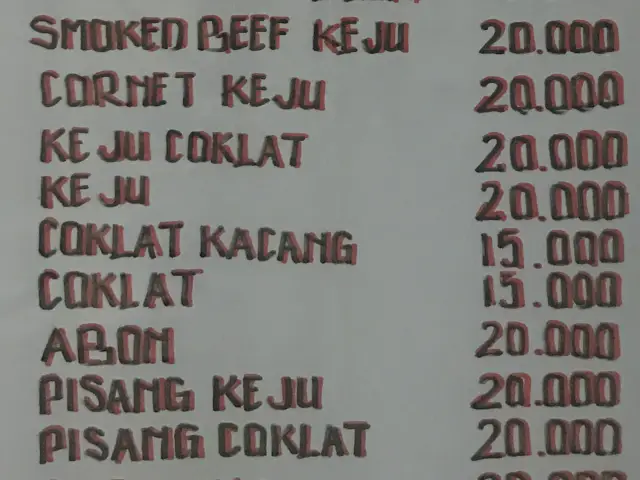 SMOKED BEEF KEJU 20.000
CORNET KEJU 20.000
KEJU COKLAT 20.000
KEJU 20.000
COKLAT KACANG 15.000
COKLAT 15.000
ABON 20.000
PISANG KEJU 20.000
PISANG COKLAT 20.000